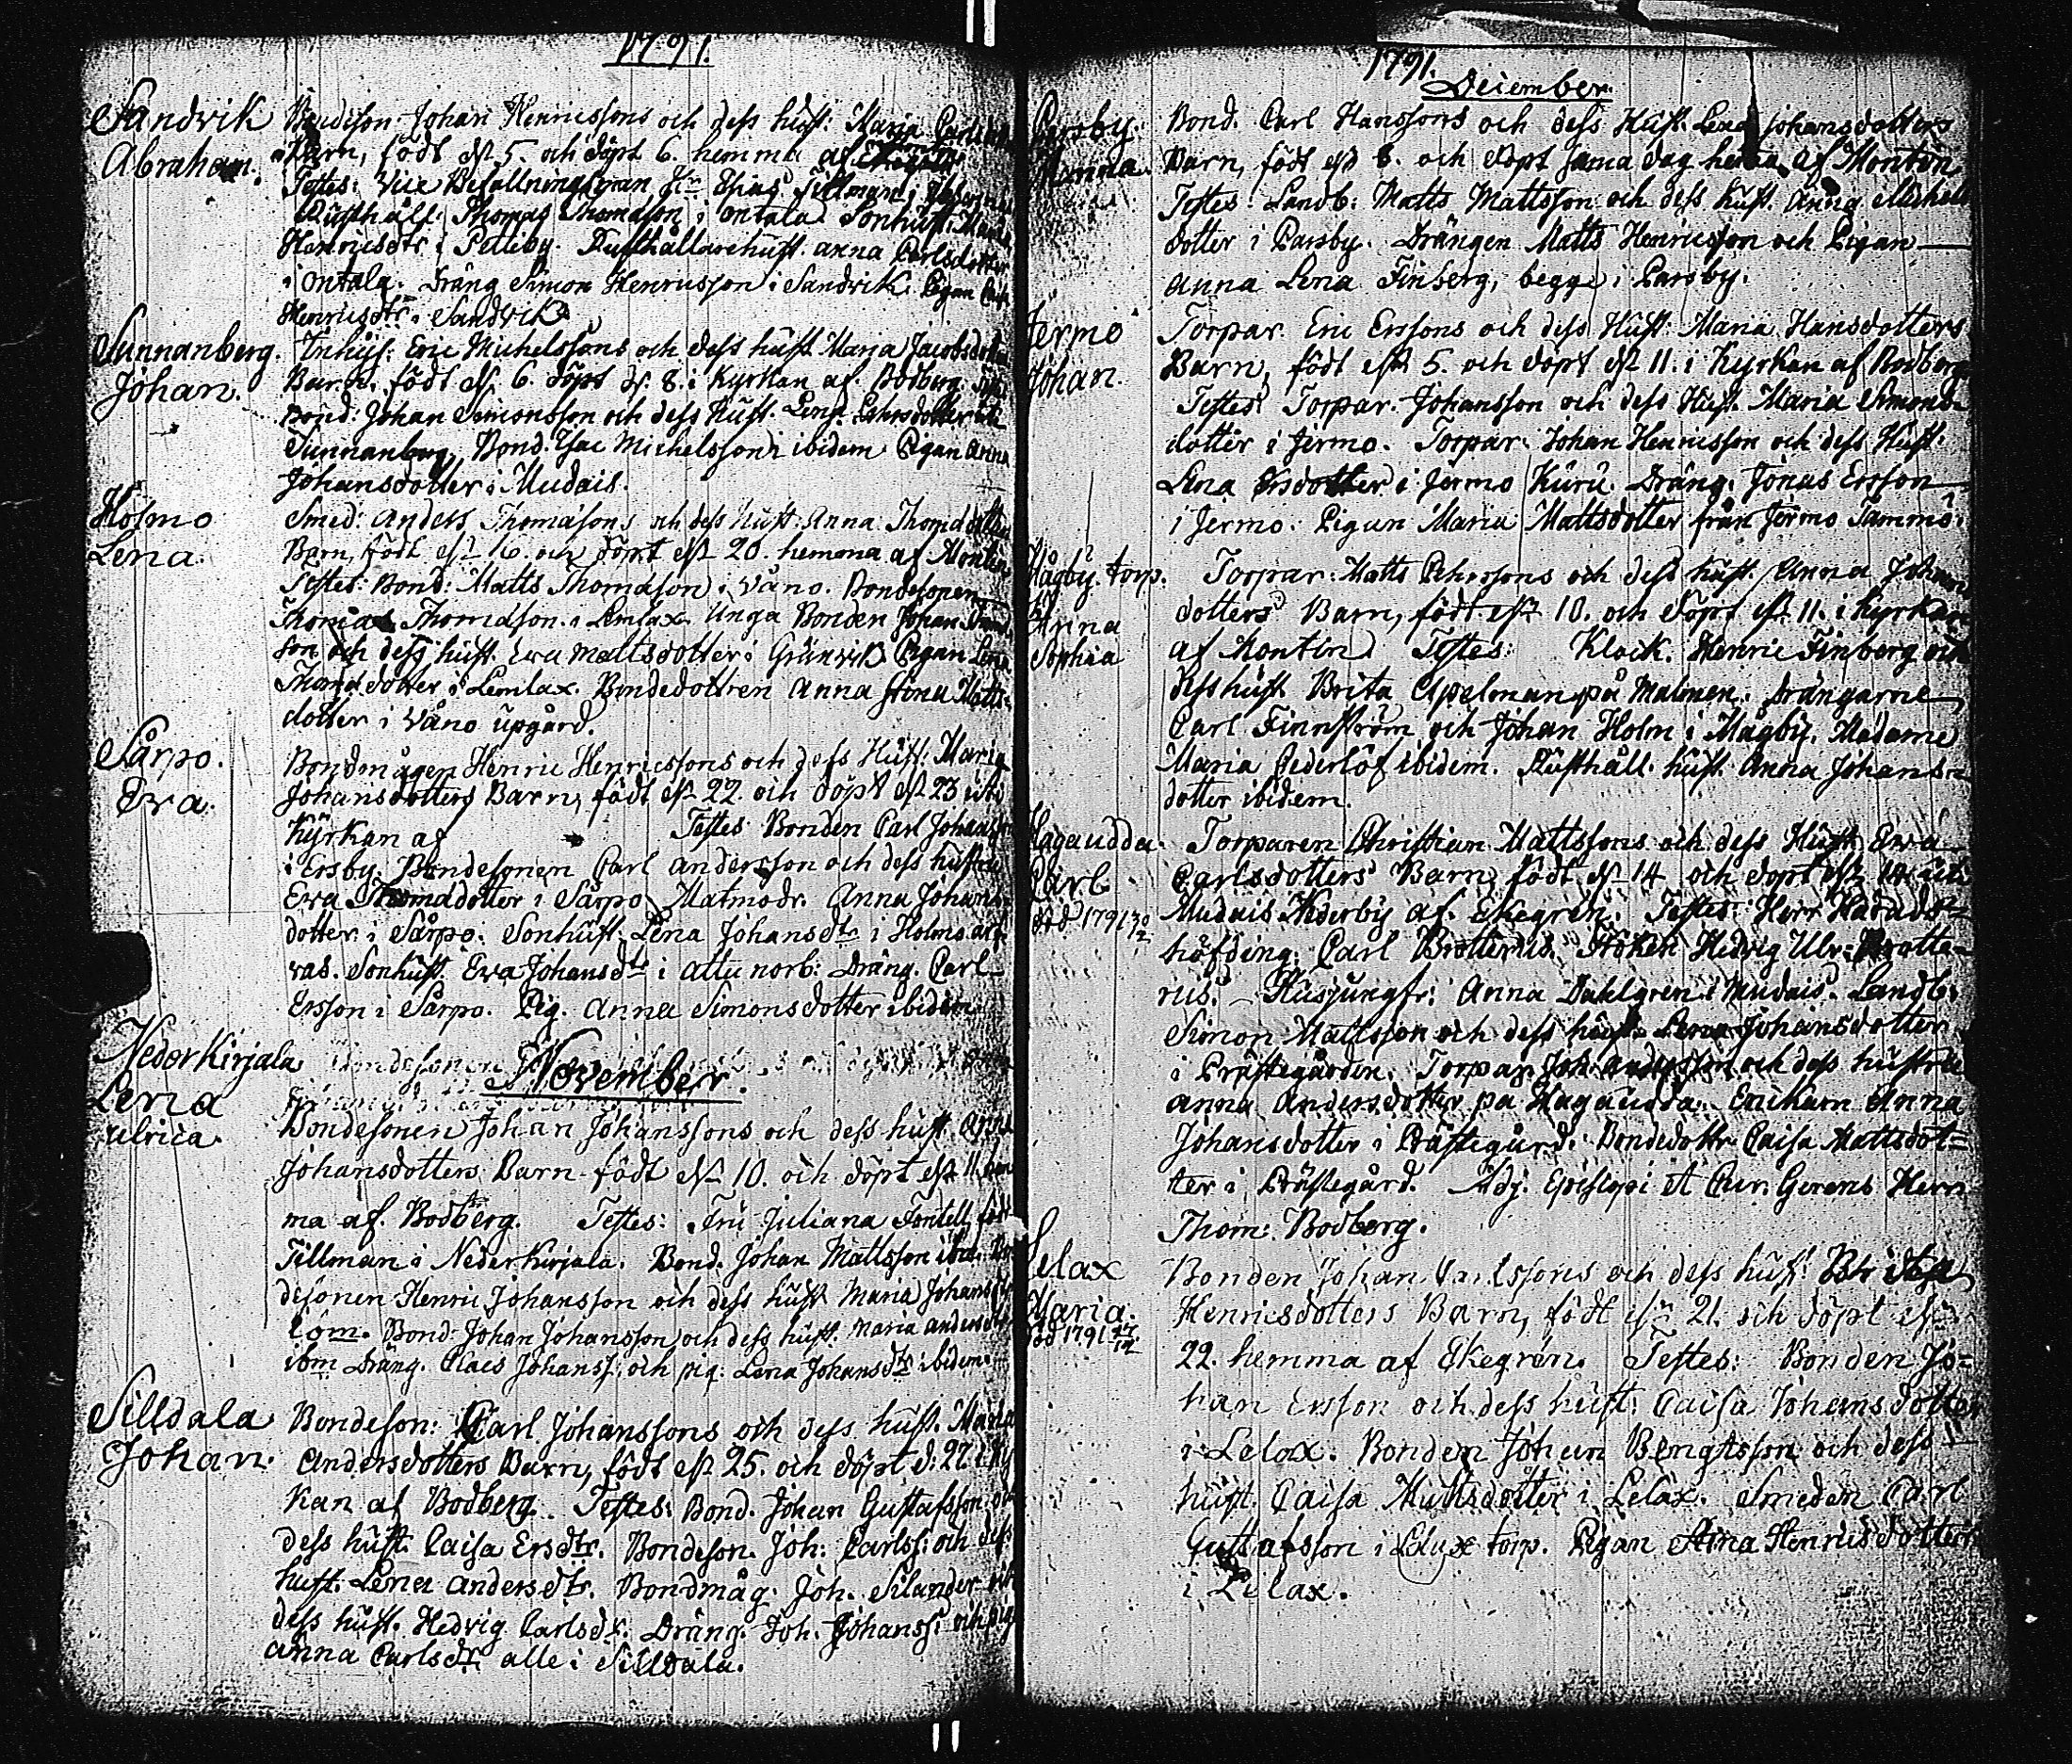 1791.
Sandvik Bondeson Johan Henricssons och dess hust. Maria Carlsdotters
Abraham. Barn, född d. 5. och döpt 6. hemma af
Testes: Vice Befallningsman Hr Elias Tillman i
Rusthåll: Thomas Thomasson i Ontala Sonhust: Maria
Henricsdtr i Petteby. Rusthållarehust. Anna Carlsdotter
i Ontala. Dräng Simon Henricsson i Sandvik. Pigan
Henricsdtr i Sandvik.
Sunnanberg. Inhys: Eric Michelssons och dess hust. Marja Jacobsdotters
Johan. Barn, född d. 6. döpt d. 8. i Kyrkan af Bodberg.
Bond: Johan Simonsson och dess Hust. Lena
Sunnanberg, Bond. Isac Michelsson ibidem Pigan Anna
Johansdotter i Mudais.
Holmo Smed: Anders Thomasons och dess hust: Anna Thomædotters
Lena. Barn, född d. 16. och döpt d. 20. hemma af Montin
Testes: Bond: Matts Thomasson i Våno. Bondesonen
Thomas Thomasson i Lemlax. Unga Bonden Johan
son och dess hust. Eva Mattsdotter i Grünvik Pigan Lena
Thomædotter i Lemlax. Bondedottren Anna Stina Matts-
dotter i Våno upgård.
Sårpo. Bondmågen Henric Henricssons och dess Hust: Maria
Eva. Johansdotters Barn, född d. 22. och döpt d. 23 uti
Kyrkan af Testes Bonden Carl Johansson
i Ersby. Bondesonen Carl Andersson och dess hustru
Eva Thomædotter i Sårpo Matmodr. Anna Johans-
dotter i Sårpo. Sonhust. Lena Johansdtr i Holmo
Sonhust. Eva Johansdtr i Attu norb: Dräng. Carl
Ersson i Sårpo. Pig. Anna Simonsdotter ibidem
November.
Nederkirjala
Lena Ulrica. Bondesonen Johan Johanssons och dess hust Anna
Johansdotters Barn född d. 10. och döpt d. 11. hem-
ma af Bodberg. Testes: Fru Juliana Fontell, född
Tillman i Nederkirjala. Bond. Johan Mattsson ibid. Bon-
desonen Henric Johansson och dess hust Maria Johansdtr
Bond: Johan Johansson och dess hust. Maria Andersdtr
ibm Dräng. Claes Johanss: och pig. Lena Johansdtr ibidem
Silldala Bondeson: Carl Johanssons och dess hust. Maria
Johan. Andersdotters Barn, född d. 25. och döpt d: 27. i Kyr
kan af Bodberg. Testes: Bond. Johan Gustafsson och
dess hust. Caisa Ersdtr. Bondeson. Joh: Carlss: och dess
hust. Lena Andersdtr. Bondmåg: Joh. Silander och
dess hust. Hedvig Carlsdr. Dräng. Joh. Johanss: och pig
Anna Carlsdtr alle i Silldala.
1791.
December.
Parsby. Bond. Carl Hanssons och dess Hust. Lena Johansdotters
Hanna. Barn, född d. 8. och döpt sama dag hema af Montin
Testes: Landb: Matts Mattsson och dess hust. Anna Michels
dotter i Parsby. Drängen Matts Henricsson och Pigan
Anna Lena Finberg, begge i Parsby.
Jermo Torpar. Eric Erssons och dess Hust: Maria Hansdotters
Johan. Barn, född d. 5. och döpt d. 11. i Kyrkan af Bodberg
Testes: Torpar. Johansson och dess Hust. Maria Simons-
dotter i Jermo. Torpar. Johan Henricsson och dess Hust.
Lena Ersdotter i Jermo Kuru. Dräng. Jonas Ersson
i Jermo. Pigan Maria Mattsdotter från Jermo Sammo.
Mågby torp. Torpar: Matts Pehrssons och dess hust. Anna Johans
Anna dotters Barn, född d. 10. och döpt d. 11. i Kyrkan
Sophia af Montin Testes: Klock. Henric Finberg och
dess hust Brita Apelman på Malmen. Drängarne
Carl Finnström och Johan Holm i Mågby. Madame
Maria Cederlöf ibidem. Rusthåll. hust. Anna Johans-
dotter ibidem.
Hagaudda. Torparen Christian Mattssons och dess Hust. Eva
Carl Carlsdotters Barn, född d. 14 och döpt d. uti
död 1791 Mudais Nederby af Ekegren. Testes: Herr Härads-
höfding. Carl Brotterus. Fröken Hedvig Ulr. Brotte-
rus. Husjungfr: Anna Dahlgren i Mudais. Landb.
Simon Mattsson och dess hust. Lena Johansdotter
i Prästegården. Torpar Joh. Andersson och dess hustru
Anna Andersdotter på Hagaudda. Enckan Anna
Johansdotter i Prästegård. Bondedottr Caisa Mattsdot-
ter i Prästegård. Adj. Episcopi et Cur. Gerens Herr
Thom: Bodberg.
Lelax Bonden Johan Carlssons och dess hust: Brita
Maria. Henricsdotters Barn, född d. 21. och döpt d.
död 1791 22. hemma af Ekegren. Testes: Bonden Jo-
han Ersson och dess hust: Caisa Johansdotter
i Lelax. Bonden Johan Bengtsson och dess
hust. Caisa Mattsdotter i Lelax. Smeden Carl
Gustafsson i Lelax torp. Pigan Stina Henricsdotter
i Lelax.